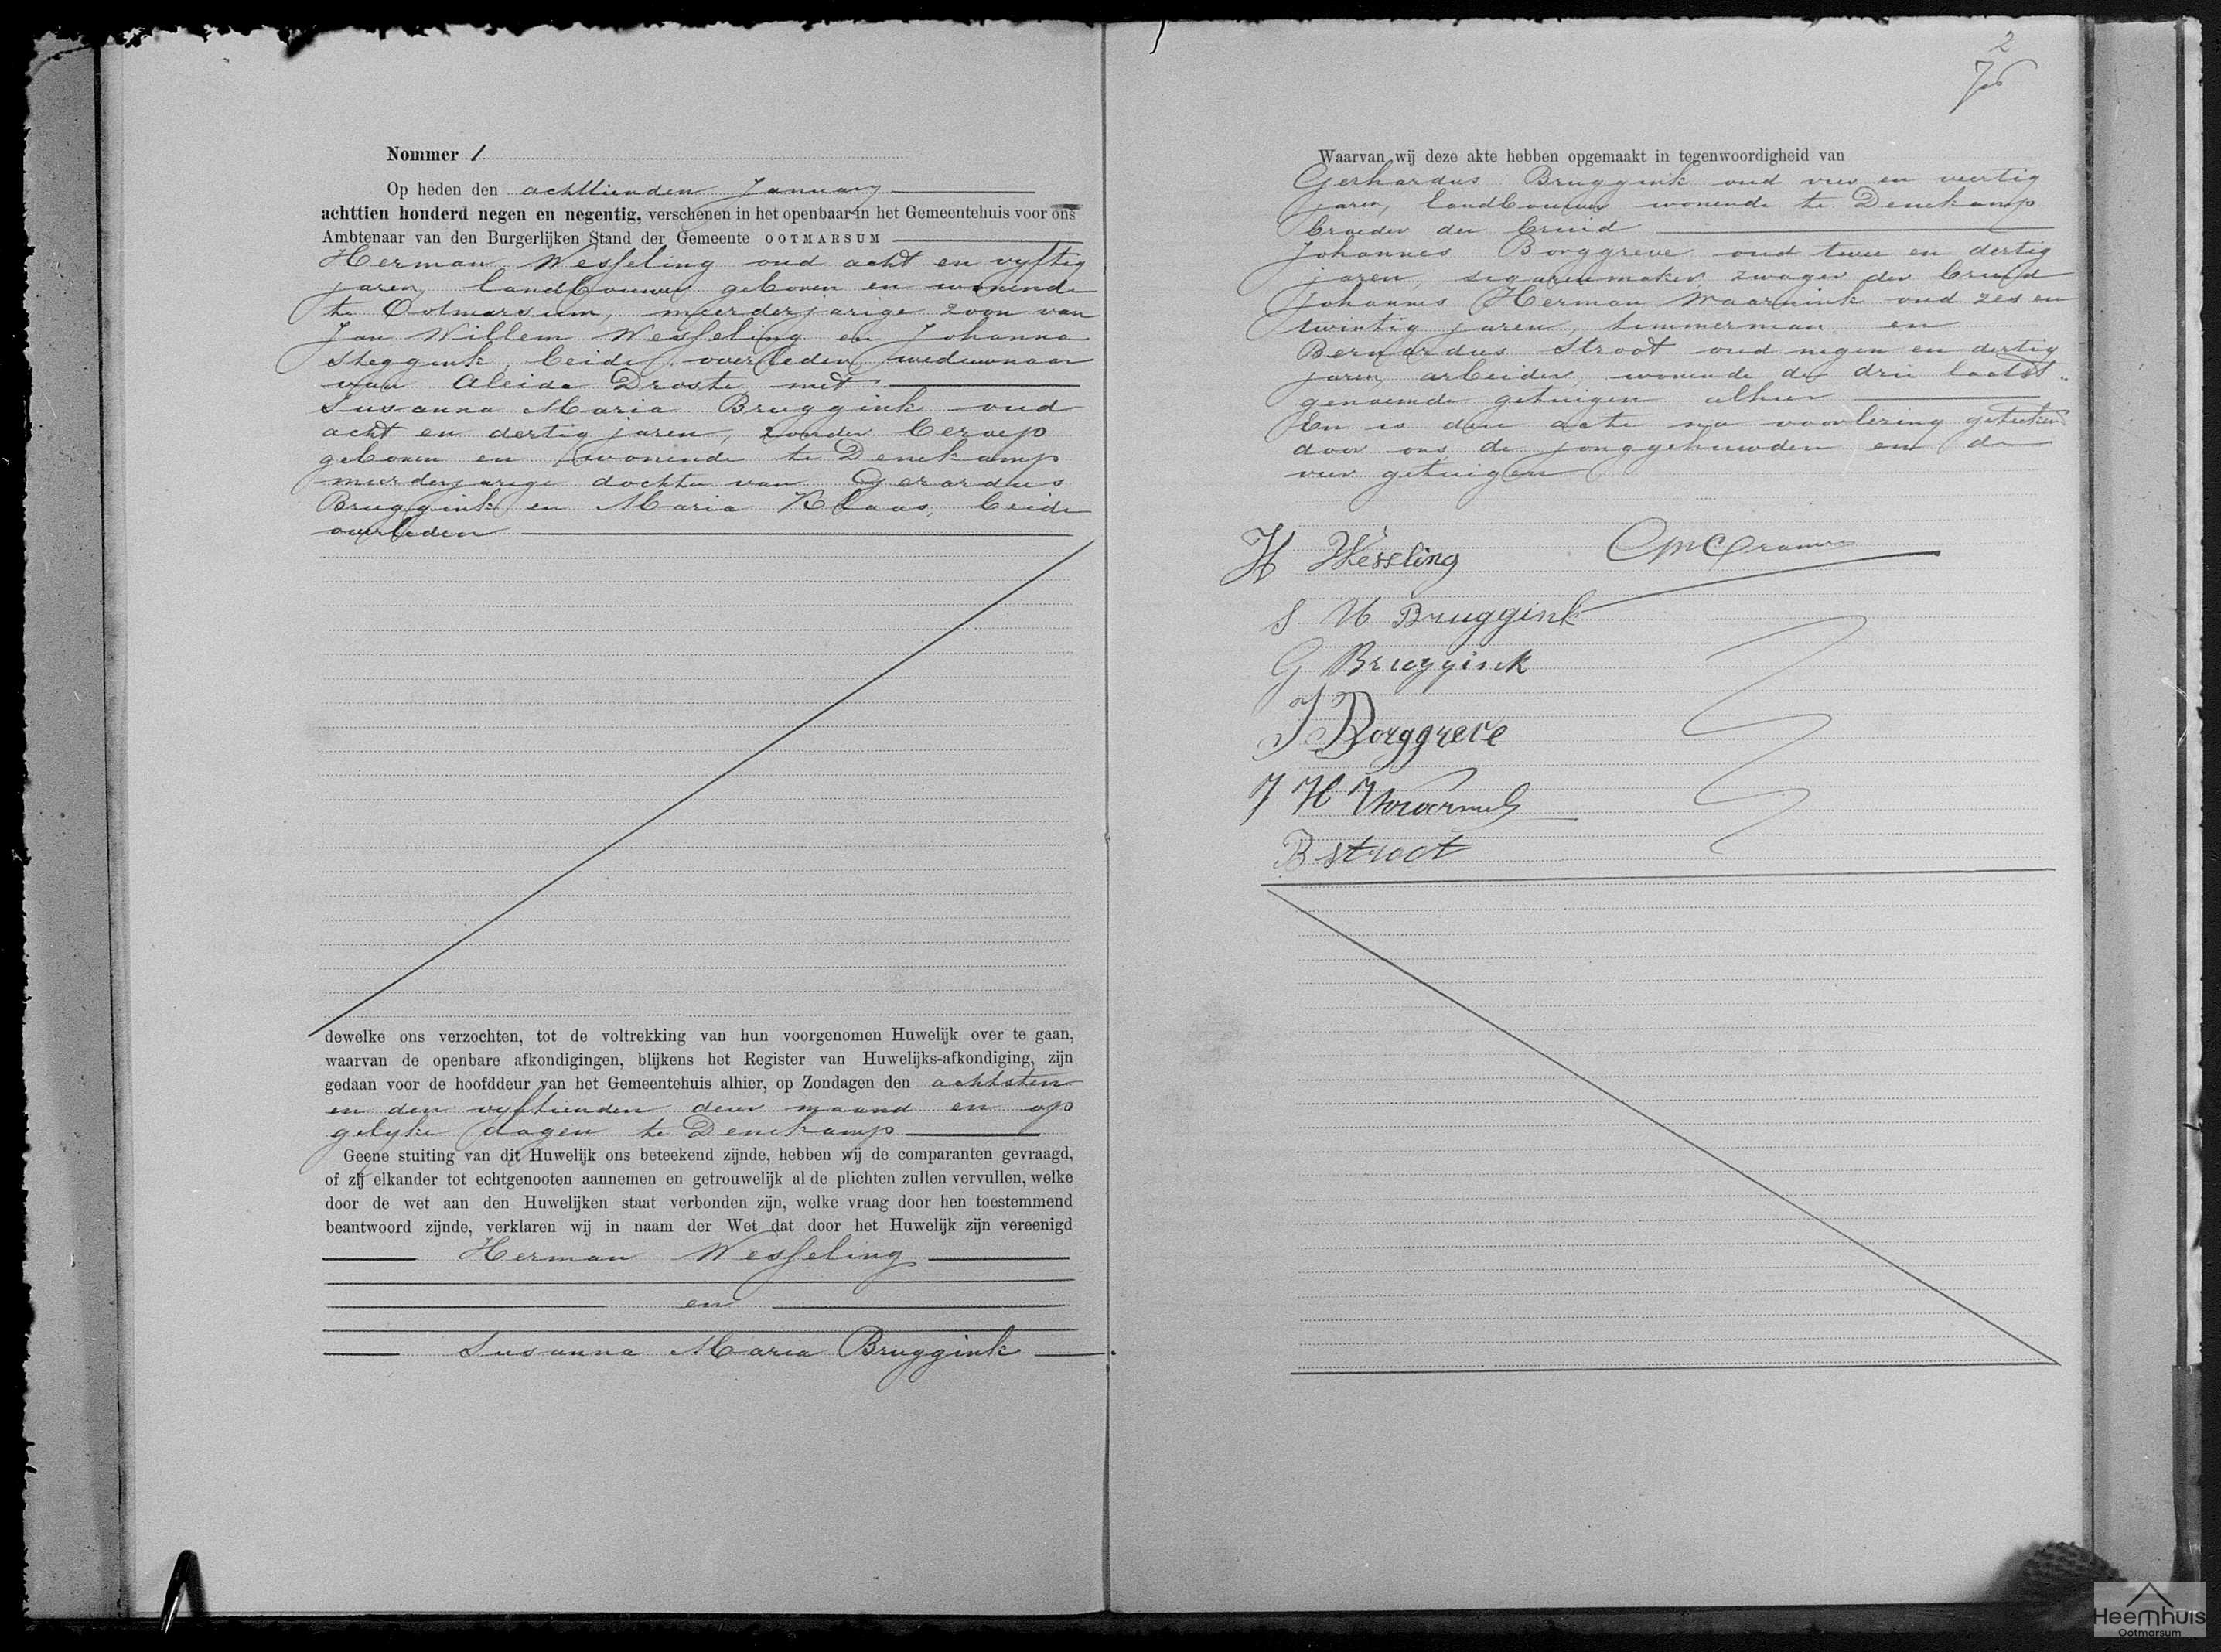 Nommer 1
Op heden den achttienden January
achttien honderd negen en negentig, verschenen in het openbaar in het Gemeentehuis voor ons
Ambtenaar van den Burgerlijken Stand der Gemeente OOTMARSUM
Herman Wesseling oud acht en vyftig
jaren, landbouwer geboren en wonende
te Ootmarsum, meerderjarige zoon van
Jan Willem Wesseling en Johanna
Steggink, beide overleden, weduwnaar
van Aleida Droste met
Susanna Maria Bruggink oud
acht en dertig jaren, zonder beroep
geboren en wonende te Denekamp
meerderjarige dochter van Gerardus
Bruggink en Maria Klaas, beide
overleden
dewelke ons verzochten, tot de voltrekking van hun voorgenomen Huwelijk over te gaan,
waarvan de openbare afkondigingen, blijkens het Register van Huwelijks-afkondiging, zijn
gedaan voor de hoofddeur van het Gemeentehuis alhier, op Zondagen den achtsten
en den vyftienden dezer maand en op
gelyke dagen te Denekamp
Geene stuiting van dit Huwelijk ons beteekend zijnde, hebben wij de comparanten gevraagd,
of zij elkander tot echtgenooten aannemen en getrouwelijk al de plichten zullen vervullen, welke
door de wet aan den Huwelijken staat verbonden zijn, welke vraag door hen toestemmend
beantwoord zijnde, verklaren wij in naam der Wet dat door het Huwelijk zijn vereenigd
Herman Wesseling
en
Susanna Maria Bruggink
2
Waarvan wij deze akte hebben opgemaakt in tegenwoordigheid van
Gerhardus Bruggink oud vier en veertig
jaren, landbouwer wonende te Denekamp
broeder der bruid
Johannes Borggreve oud twee en dertig
jaren, sigarenmaker, zwager der bruid
Johannes Herman Waarmink oud zes en
twintig jaren, timmerman en
Bernardus Stroot oud negen en dertig
jaren, arbeider, wonende de drie laatst
genoemde getuigen alhier
En is deze acte na voorlezing geteekend
door ons, de jonggehuwden en de
vier getuigen
H Wessling
S M Bruggink
G Bruggink
J Borggreve
J H
B stroot
Heemhuis
Ootmarsum